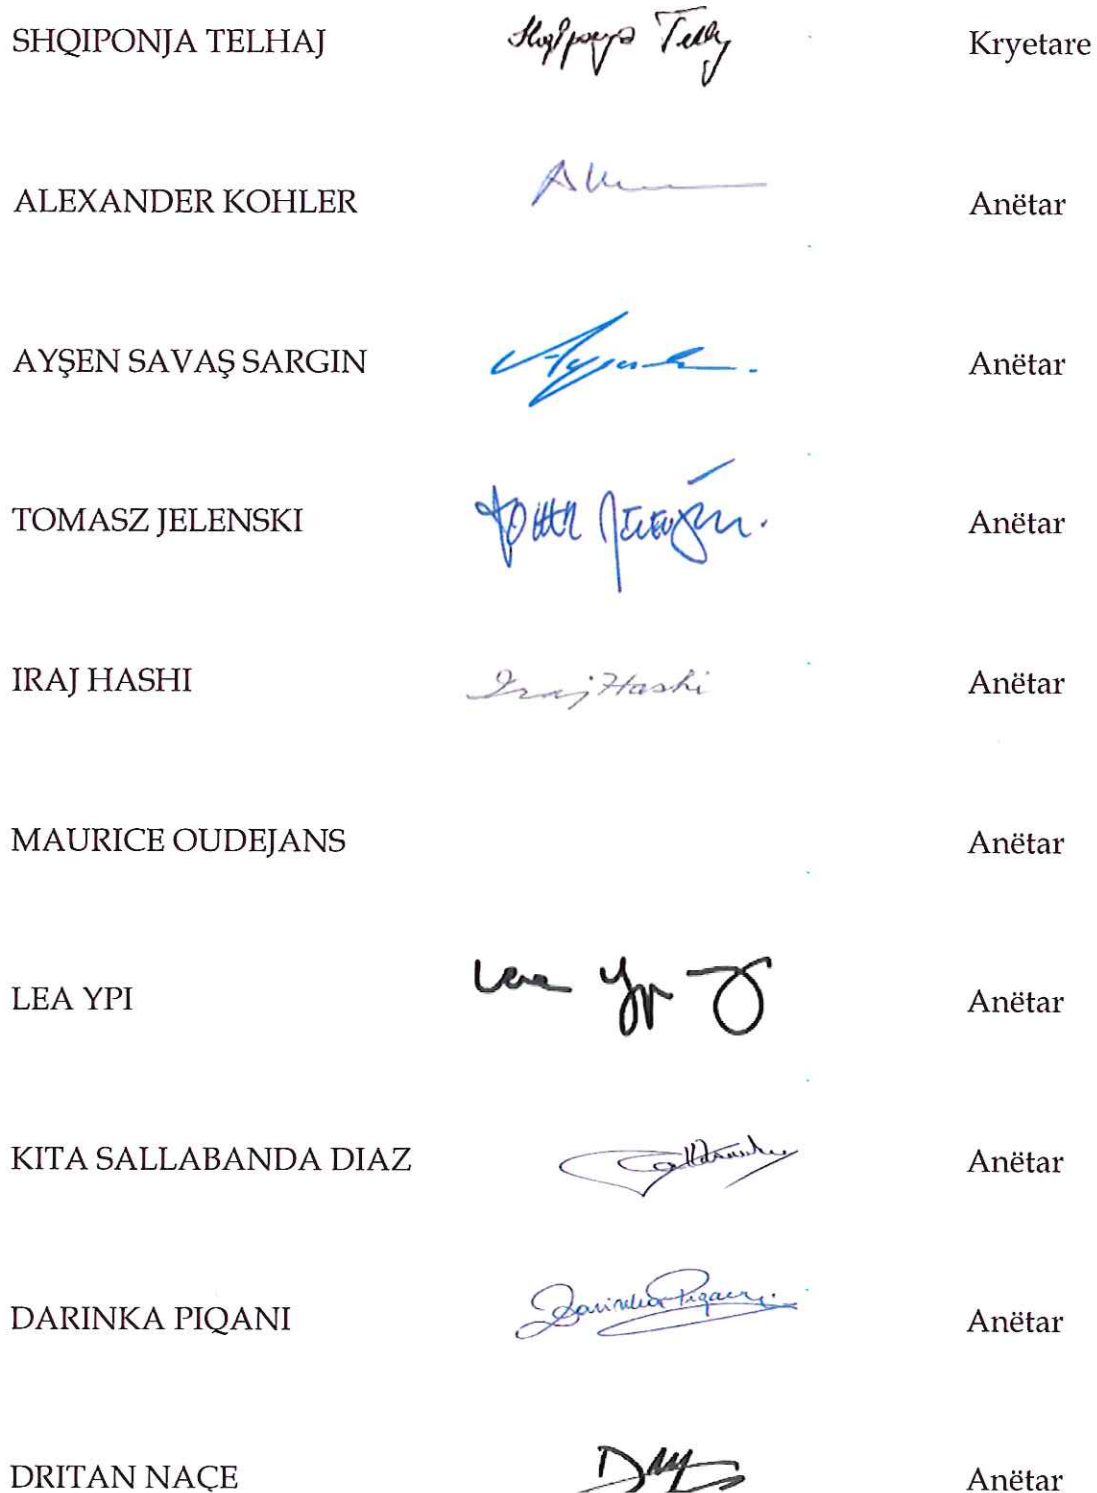 SHQIPONJA TELHAJ Shqiponja Telhaj Kryetare
ALEXANDER KOHLER Anëtar
AYŞEN SAVAŞ SARGIN Anëtar
TOMASZ JELENSKI Anëtar
IRAJ HASHI Iraj Hashi Anëtar
MAURICE OUDEJANS Anëtar
LEA YPI Lea Ypi Anëtar
KITA SALLABANDA DIAZ Anëtar
DARINKA PIQANI Darinka Piqani Anëtar
DRITAN NAÇE Anëtar